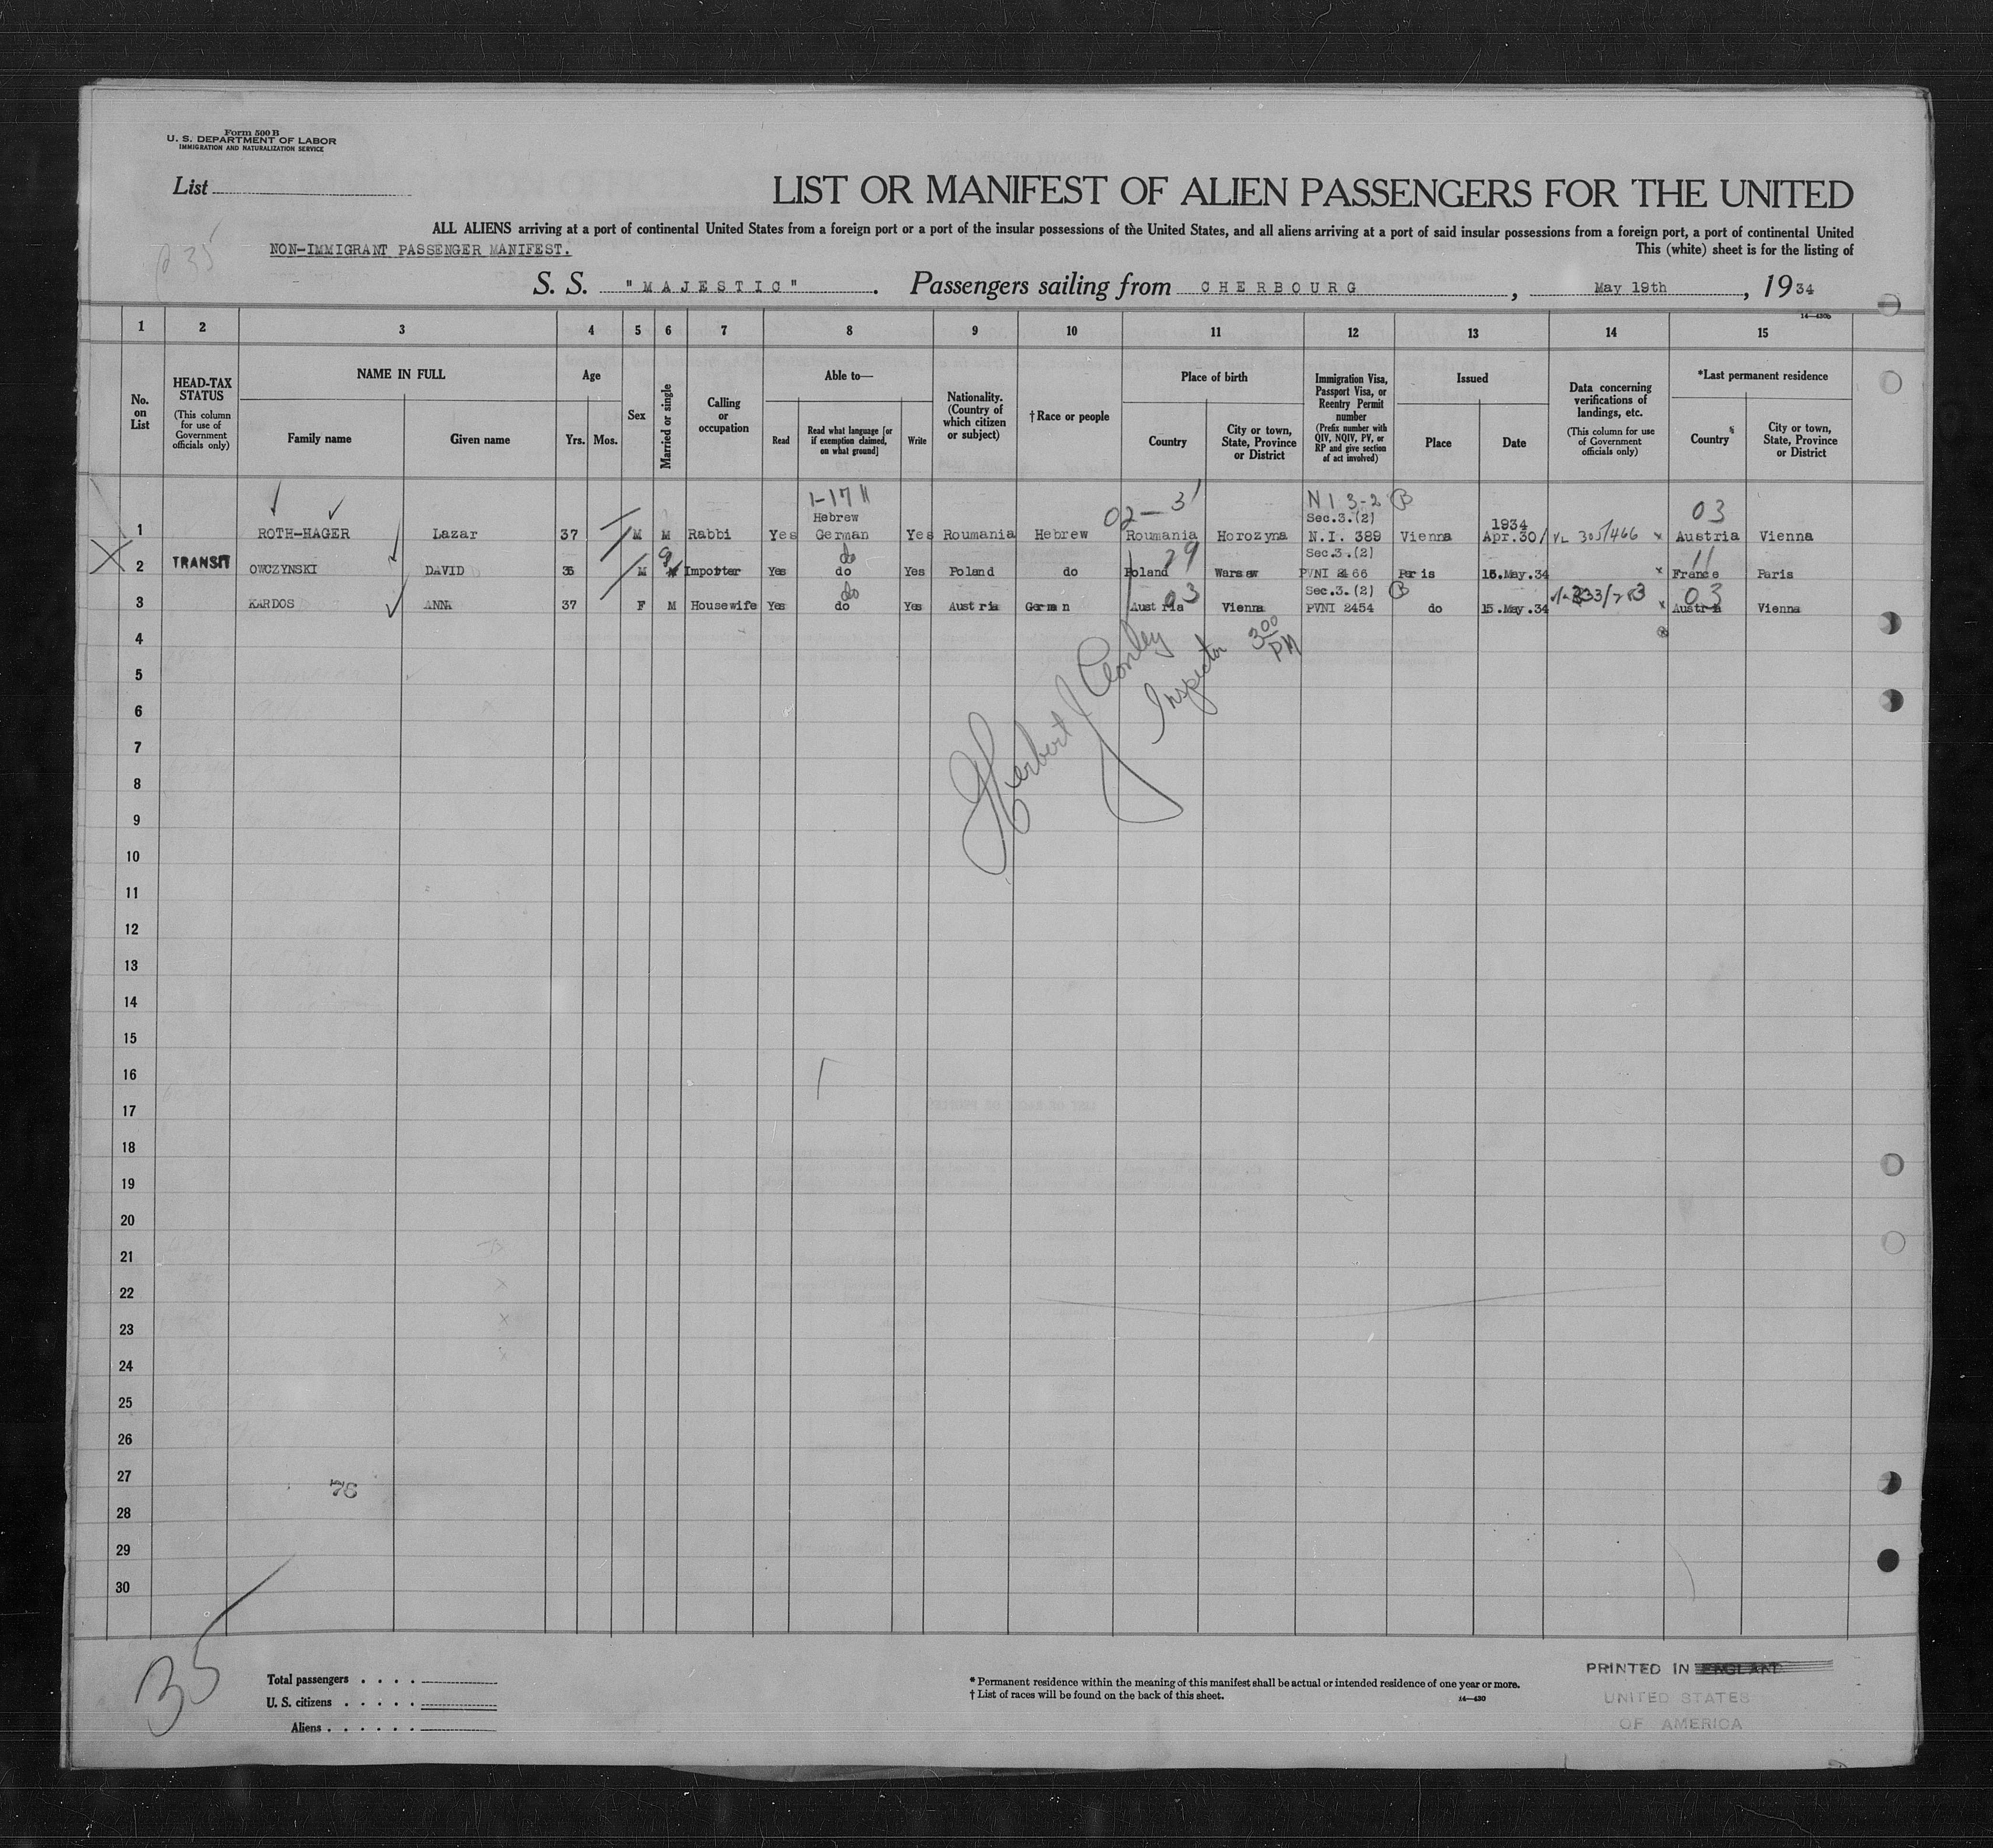 Form 500 B
U. S. DEPARTMENT OF LABOR
IMMIGRATION AND NATURALIZATION SERVICE
List
LIST OR MANIFEST OF ALIEN PASSENGERS FOR THE UNITED
ALL ALIENS arriving at a port of continental United States from a foreign port or a port of the insular possessions of the United States, and all aliens arriving at a port of said insular possessions from a foreign port, a port of continental United
NON-IMMIGRANT PASSENGER MANIFEST. This (white) sheet is for the listing of
S. S. "MAJESTIC". Passengers sailing from CHERBOURG, May 19th, 1934
14-430b
1 2 3 4 5 6 7 8 9 10 11 12 13 14 15
No. on List
HEAD-TAX STATUS
(This column for use of Government officials only)
NAME IN FULL
Family name Given name
Age
Yrs. Mos.
Sex
Married or single
Calling or occupation
Able to—
Read
Read what language [or if exemption claimed, on what ground]
Write
Nationality. (Country of which citizen or subject)
†Race or people
Place of birth
Country
City or town, State, Province or District
Immigration Visa, Passport Visa, or Reentry Permit number
(Prefix number with QIV, NQIV, PV, or RP and give section of act involved)
Issued
Place Date
Data concerning verifications of landings, etc.
(This column for use of Government officials only)
*Last permanent residence
Country
City or town, State, Province or District
1-17 11 02-31 N I 3-2 B 03
Hebrew Sec.3.(2) 1934
1 ROTH-HAGER Lazar 37 M M Rabbi Yes German Yes Roumania Hebrew Roumania Horozyna N.I. 389 Vienna Apr.30/ VL 305/466 x Austria Vienna
do 29 Sec.3.(2) 11
2 TRANSIT OWCZYNSKI DAVID 35 M Importer Yes do Yes Poland do Poland Warsaw PVNI 2466 Paris 15.May.34 x France Paris
do 03 Sec.3.(2) B 03
3 KARDOS ANNA 37 F M Housewife Yes do Yes Austria German Austria Vienna PVNI 2454 do 15.May.34 x Austria Vienna
4
5
6
7
8
9
10
11
12
13
14
15
16
17
18
19
20
21
22
23
24
25
26
27
28
29
30
Inspector 3 00 PM
Herbert J Conley
76
35
Total passengers
U. S. citizens
Aliens
* Permanent residence within the meaning of this manifest shall be actual or intended residence of one year or more.
† List of races will be found on the back of this sheet. 14-430
PRINTED IN ENGLAND
UNITED STATES
OF AMERICA